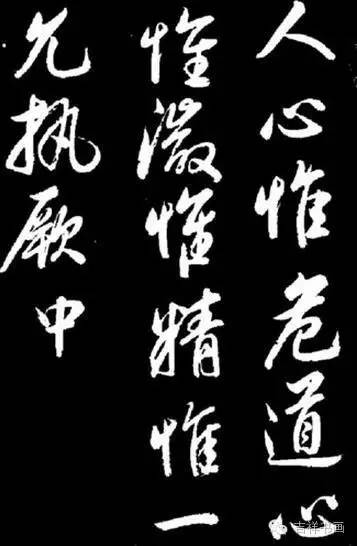 人心惟危道心
惟微惟精惟一
允执厥中
吉祥书画